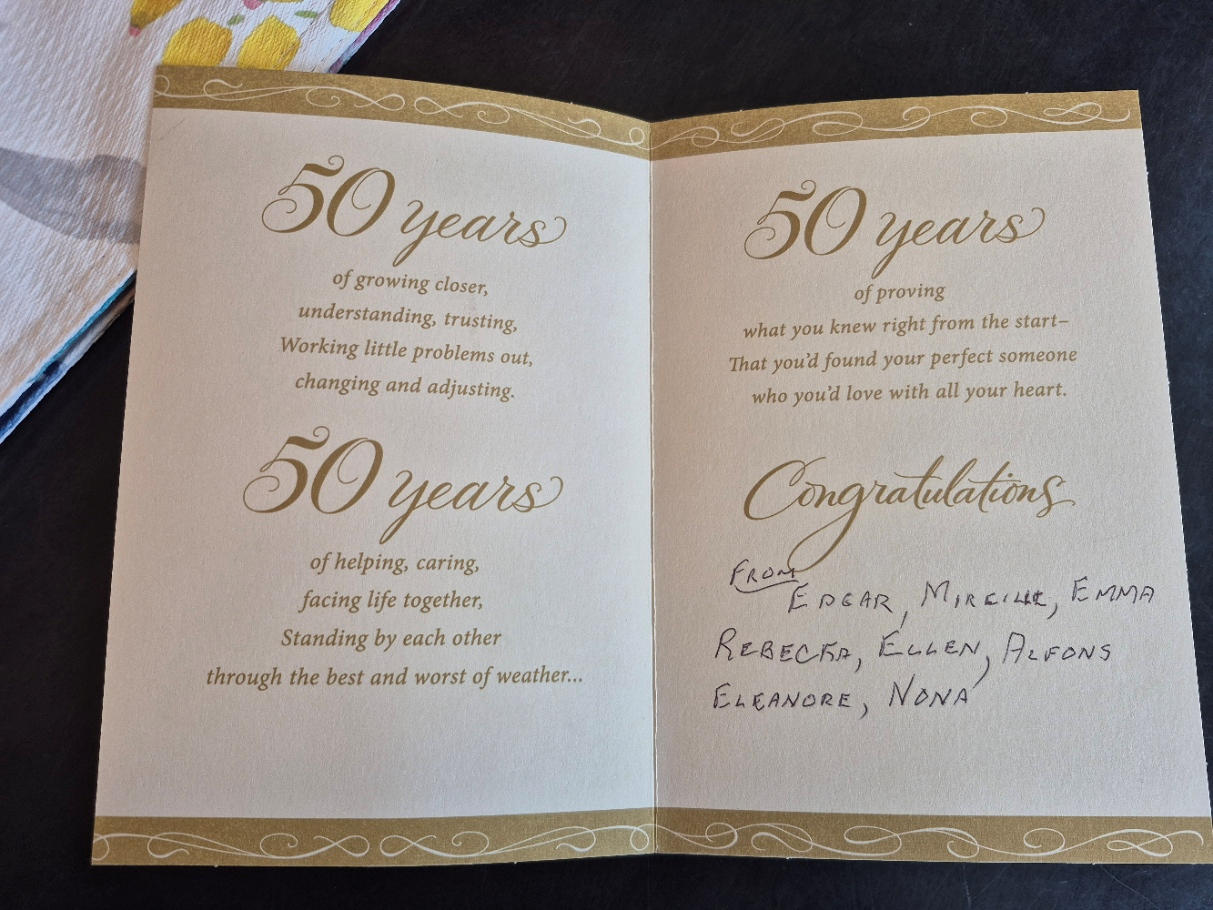 50 years
of growing closer,
understanding, trusting,
Working little problems out,
changing and adjusting.
50 years
of helping, caring,
facing life together,
Standing by each other
through the best and worst of weather...
50 years
of proving
what you knew right from the start–
That you'd found your perfect someone
who you'd love with all your heart.
Congratulations
FROM
EDGAR, MIREILLE, EMMA
REBECKA, ELLEN, ALFONS
ELEANORE, NONA